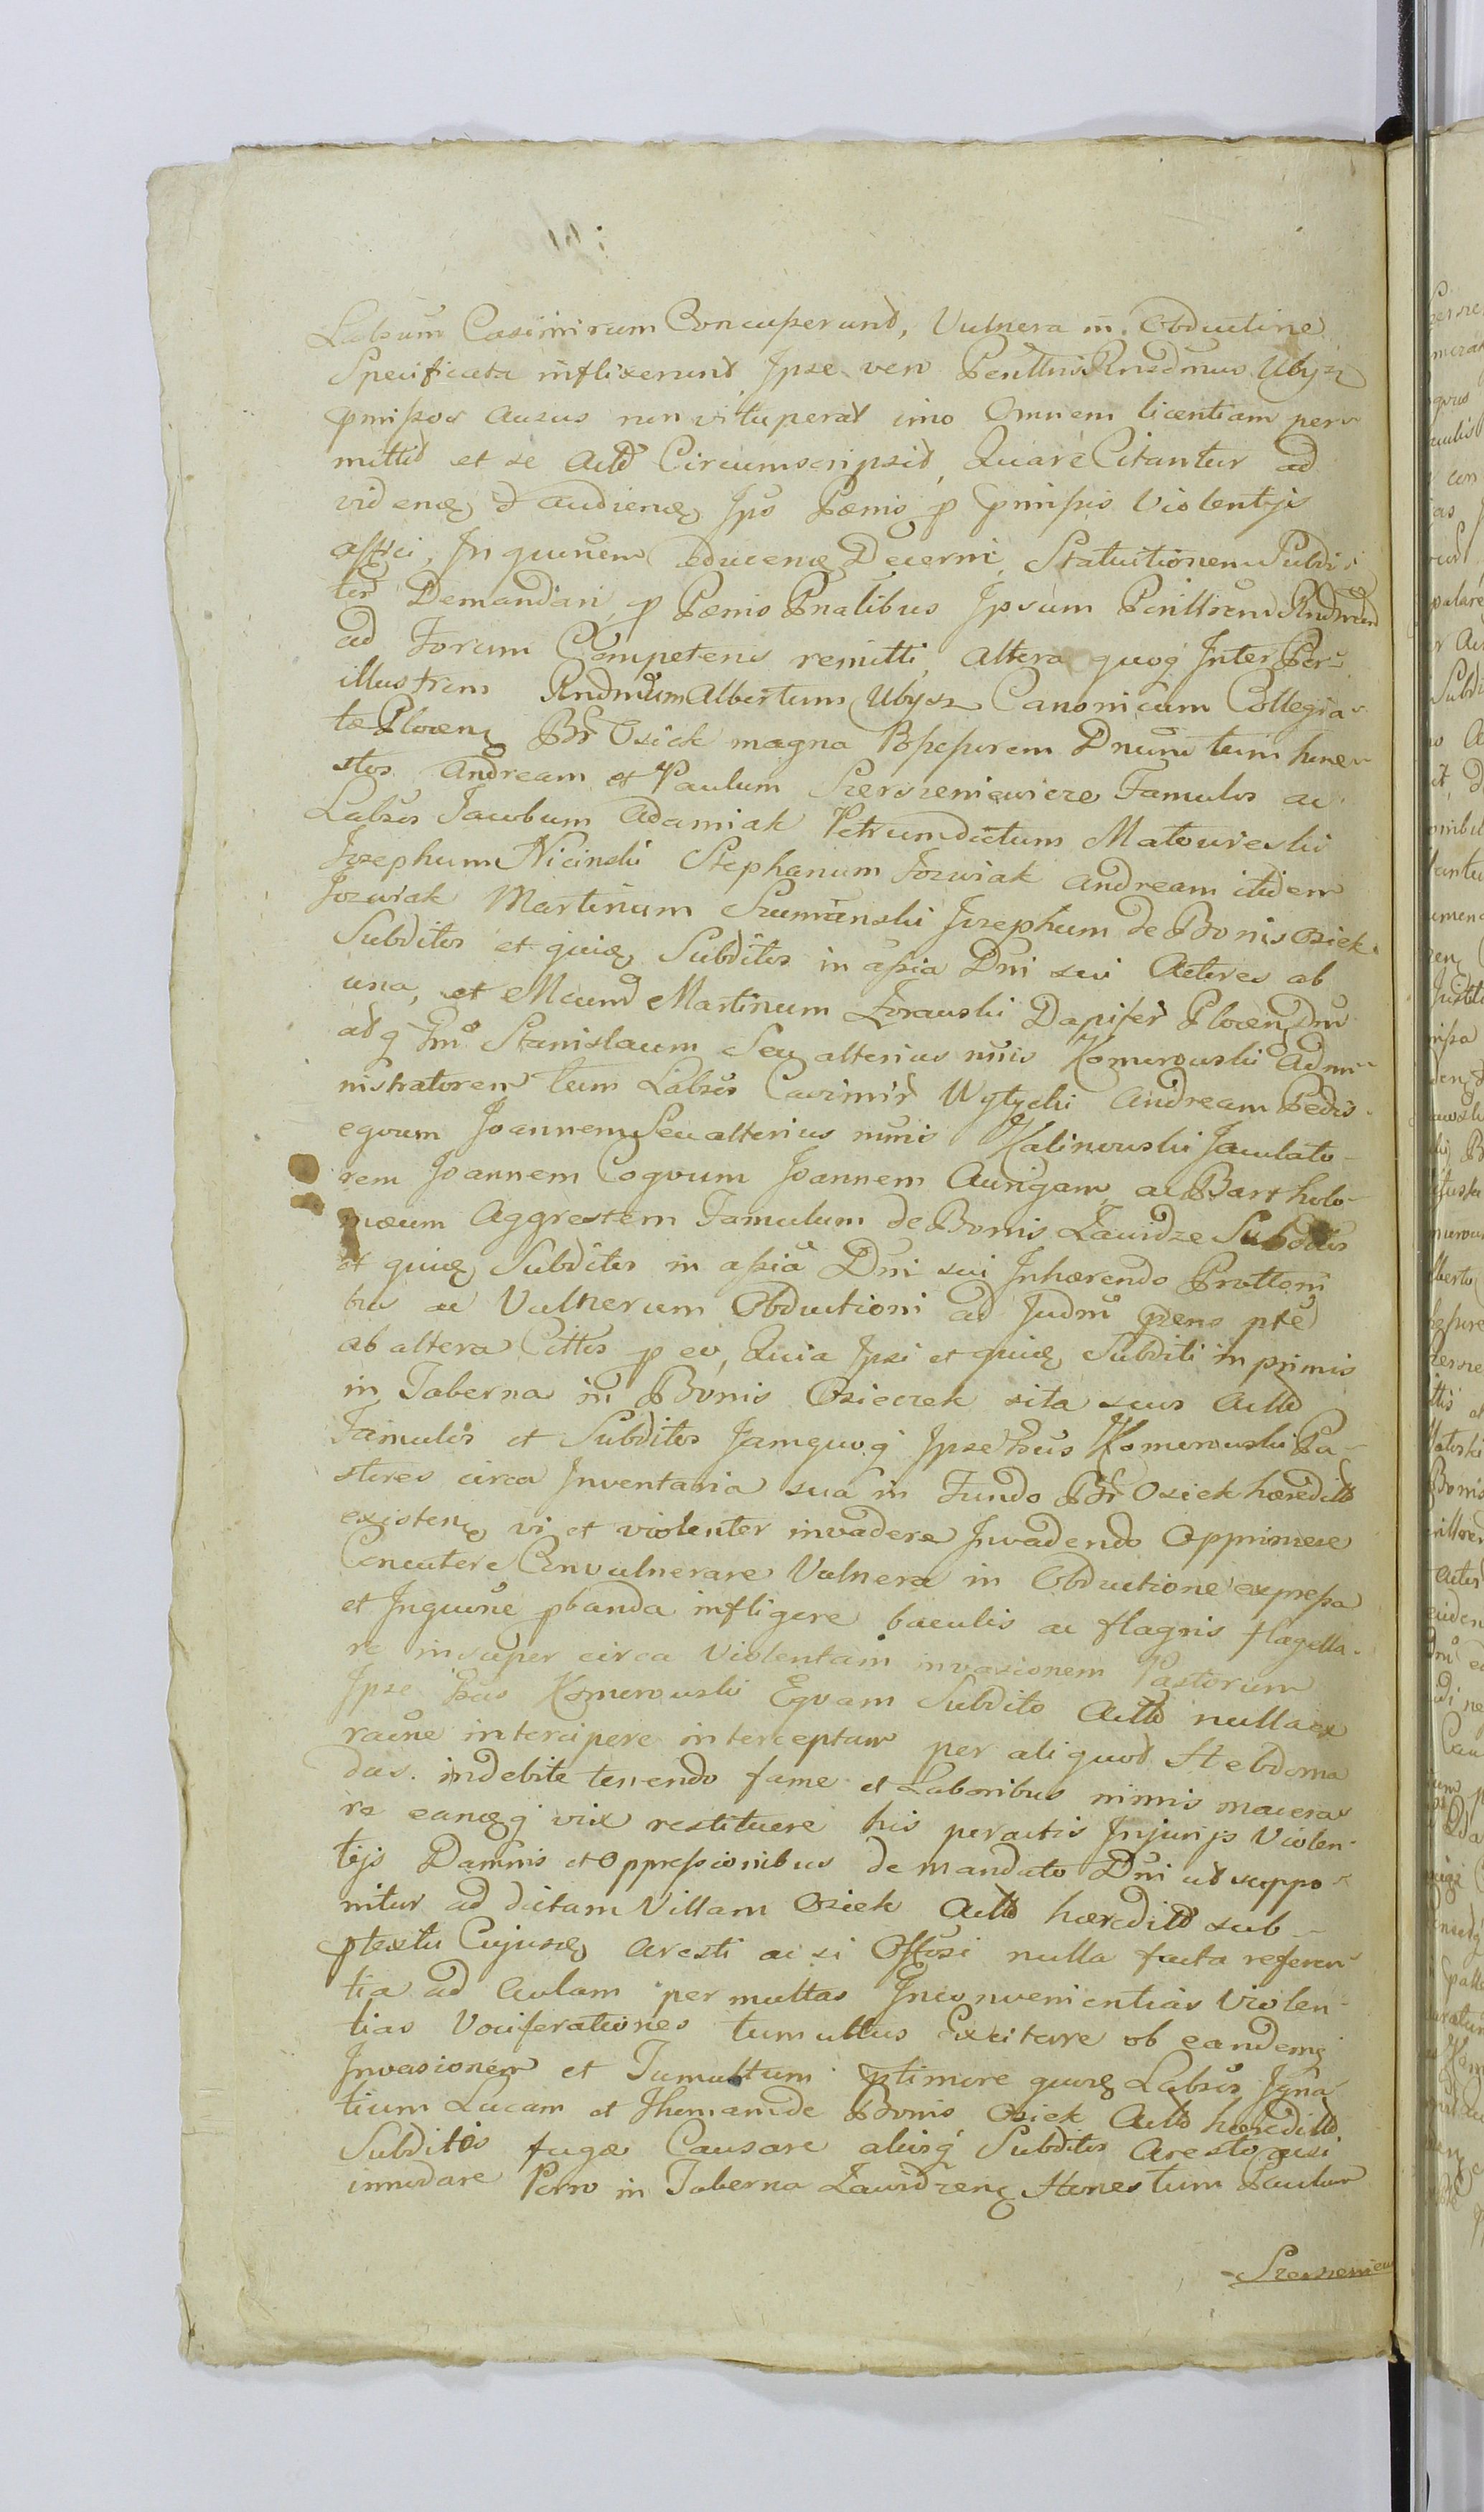 Labsum Casimirum Concusserunt, Vulnera in Obductine
Specificata inflixerunt Ipse vero Perillris Rndsmus Ubysz
pmissos ausus non vituperat imo Omnem licentiam per
mittit et se Actd Circumscripsit, Quare Citantur ad
videnđ et audienđ Ipos Pœnis p pmissis Violentijs
affici, Inquiōnem educenđ Decerni, Statuitionem Subdi
tor Demandari p Pœnis Pnalibus Ipsum Perillrem Rndmum
ad Forum Competens remitti, altera quoq Inter Per
illustrem Rndmum Albertum Ubysz Canonicum Collegia
tæ Plocen Br Osiek magna Possessorem Dnum tum hone
stos Andream et Paulum Szerszeniewicze Famulos ac
Labsos Jacobum Adamiak Petrum dictum Matowieski
Josephum Nicinski Stephanum Jozwiak Andream itidem
Jozwiak Martinum Szumanski Josephum de Bonis Osiek
Subditos et quosq Subditos in assia Dni sui Actores ab
una, et Mcum Martinum Zorawski Dapifer Plocen Dnu
atq Gnu Stanislaum Seu alterius nuis Komorowski Admi
nistratorem tum Labsos Casimir Wytychi Andream Pedis
equum Joannem Seu alterius nuis Kalinowski Jaculato
rem Joannem Coquum Joannem Aurigam ac Bartholo
mæum Aggrestem Famulum de Bonis Zawidze Subditos
et quosq Subditos in assia Dni sui Inhærendo Prottoni
bus ac Vulnerum Obductioni ad Judm psens pte
ab altera Cittos p eo, Quia Ipsi et quiq Subditi in primis
in Taberna in Bonis Osieczek sita suos Acttd
Famulos et Subditos Jamquoq Ipse Gsus Komorowski Pa
stores circa Inventaria sua in Fundo Br Osiek hæreditd
existen vi et violenter invadere Invadendo Opprimere
Concutere Convulnerare Vulnera in Obductione expressa
et Inquiōne pbanda infligere baculis ac flagris flagella
re insuper circa Violentam invasionem Pastorum
Ipse Gsus Komorowski Equam Subdito Acttd nulla ex
raōne intercipere interceptam per aliquot Hebdoma
das indebite tenendo fame et Laboribus nimis macera
re eanđq vix restituere his peractis Injurijs Violen
tijs Damnis et Oppressionibus de mandato Dni ut suppo
nitur ad dictam Villam Osiek Acttd hæreditd sub
ptextu Cujusđ aresti ac si Offosi nulla facta referen
tia ad Aulam per multas Inconvenientias Violen
tias Vociferationes tumultus Excitare ob eandemq
Invasionem et Tumultum ptimore quosđ Labsos Igna
tium Lucam et Thomam de Bonis Osiek Acttd hæreditd
Subditos fugæ Causare alios q Subditos Aresto quasi
innodare Porro in Taberna Zawidzen Honestum Paulum
Szerszeniew